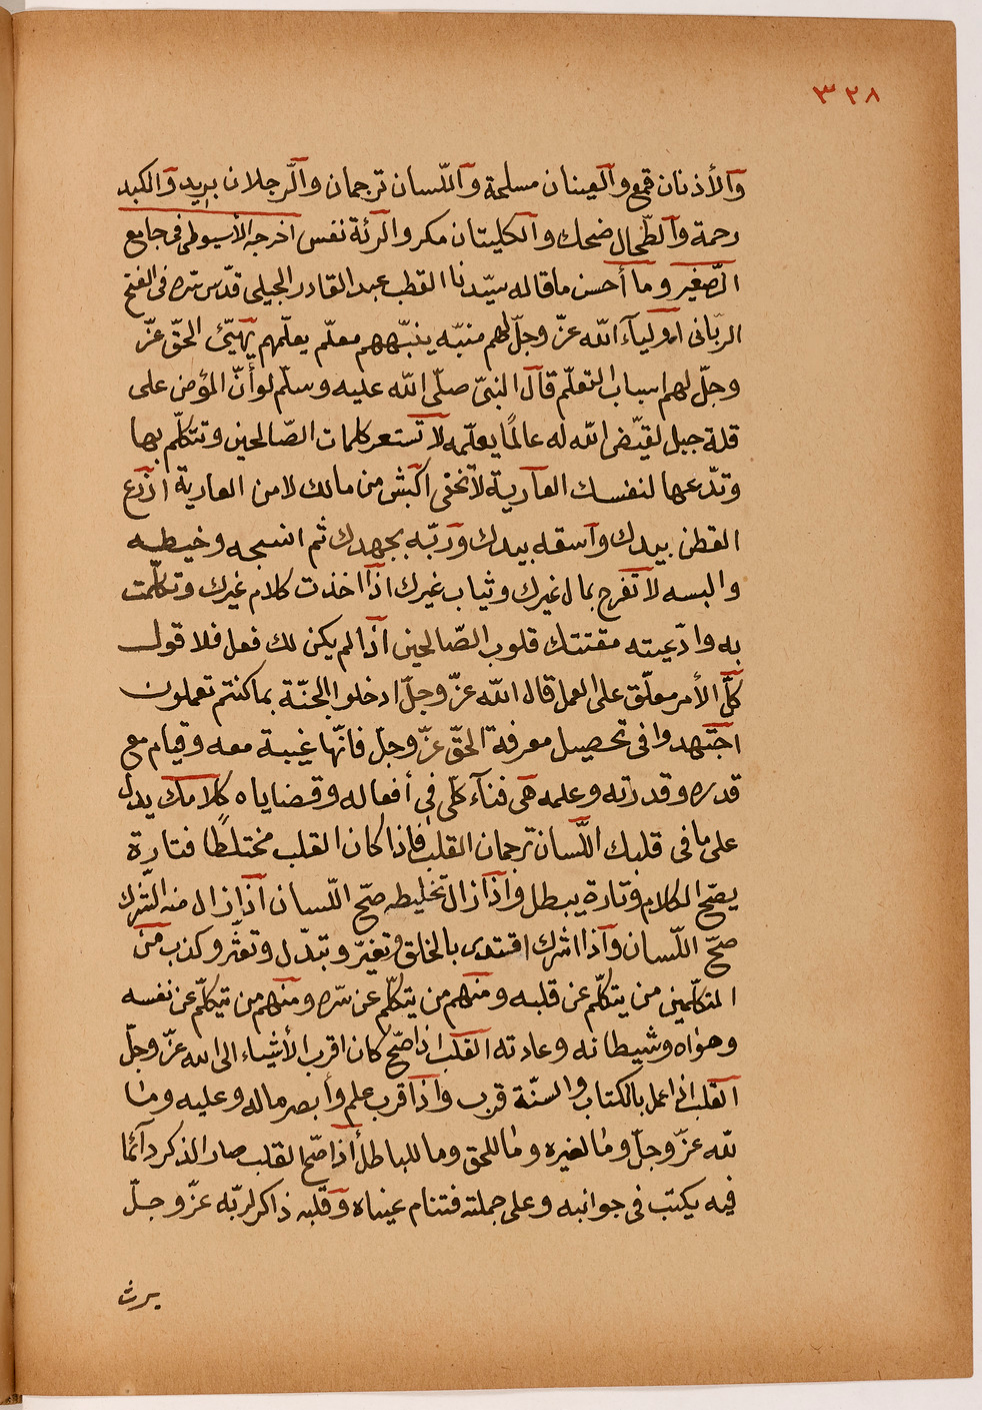 ٣٢٨
والأذنان قمع والعينان مسلحة واللّسان ترجمان والّرجلان بريد والكبد
رحمة والطّحال ضحك والكليتان مكر والرئة نفس اخرجه الأسيوطى فى جامع
الصّغير وما أحسن ما قاله سيّدنا القطب عبد القادر الجيلى قدّس سّره فى الفتح
الربّانى اولياء الله عزّ وجلّ لهم منبّه ينبّههم معلّم يعلّمهم يهيّئ الحقّ عزّ
وجلّ لهم اسباب التعلّم قال النبىّ صلّى الله عليه وسلّم لو أنّ المؤمن على
قلة جبل لقيّض الله له عالمًا يعلّمه لا تستعر كلمات الصّالحين وتتكلّم بها
وتدّعها لنفسك العارية لا تخفى اكتس من مالك لا من العارية ازرع
القطن بيدك واسقه بيدك وربّه بجهدك ثم انسجه وخيطه
والبسه لا تفرح بمال غيرك وثياب غيرك اذا اخذت كلام غيرك وتكلّمت
به وادّعيته مقتتك قلوب الصّالحين اذا لم يكن لك فعل فلا قول
كلّ الأمر معلّق على العمل قال الله عزّ وجلّ ادخلوا الجنّة بما كنتم تعملون
اجتهدوا فى تحصيل معرفة الحقّ عزّ وجلّ فانّها غيبة معه وقيام مع
قدره وقدرته وعلمه هى فناء كلّى فى أفعاله وقضاياه كلامك يدل
على ما فى قلبك اللّسان ترجمان القلب فاذا كان القلب مختلطًا فتارة
يصّح الكلام وتارة يبطل واذا زال تخليطه صحّ اللّسان اذا زال منه الشرك
صحّ اللّسان واذا اشرك اقتدى بالخلق وتغيّر وتبّدل وتعثّر وكذب من
المتكلّمين من يتكلّم عن قلبه ومنهم من يتكلّم عن سّره ومنهم من يتكلّم عن نفسه
وهواه وشيطانه وعادته القلب اذا صحّ كان اقرب الأشياء الى الله عزّ وجلّ
القلب اذا عمل بالكتاب والسنّة قرب واذا قرب علم وأبصر ماله وعليه وما
لله عزّ وجلّ وما لغيره وما للحق وما للباطل اذا صّح القلب صار الذكر دآئما
فيه يكتب فى جوانبه وعلى جملته فتنام عيناه وقلبه ذاكر لربّه عزّ وجلّ
يرث